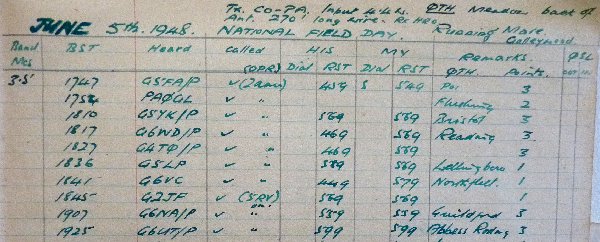 Tx. CO-PA, Input QTH Meadow back of
JUNE 5th. 1948. Ant. 270' long wire. Rx HRO Running Mare
NATIONAL FIELD DAY. 
Band BST Heard Called HIS MY Remarks. QSL
Mcs (OPR) Dial RST Dial RST QTH. Points. out in
3.5 1747 G5FA/P ✓ 459 S 549 3
1754 PAØGL ✓ " Flushing 2
1810 G5YK/P ✓ " 569 569 Bristol 3
1817 G6WD/P ✓ " 469 569 Reading 3
1827 G4TØ/P ✓ " 469 569 3
1836 G5LP ✓ " 589 569 1
1841 G6VC ✓ " 449 579 Northfleet. 1
1845 G2JF ✓ (5RV) 569 569 1
1907 G6NA/P ✓ " 559 559 Guildford 3
1925 G6UT/P ✓ " 599 599 Abbess Roding 3